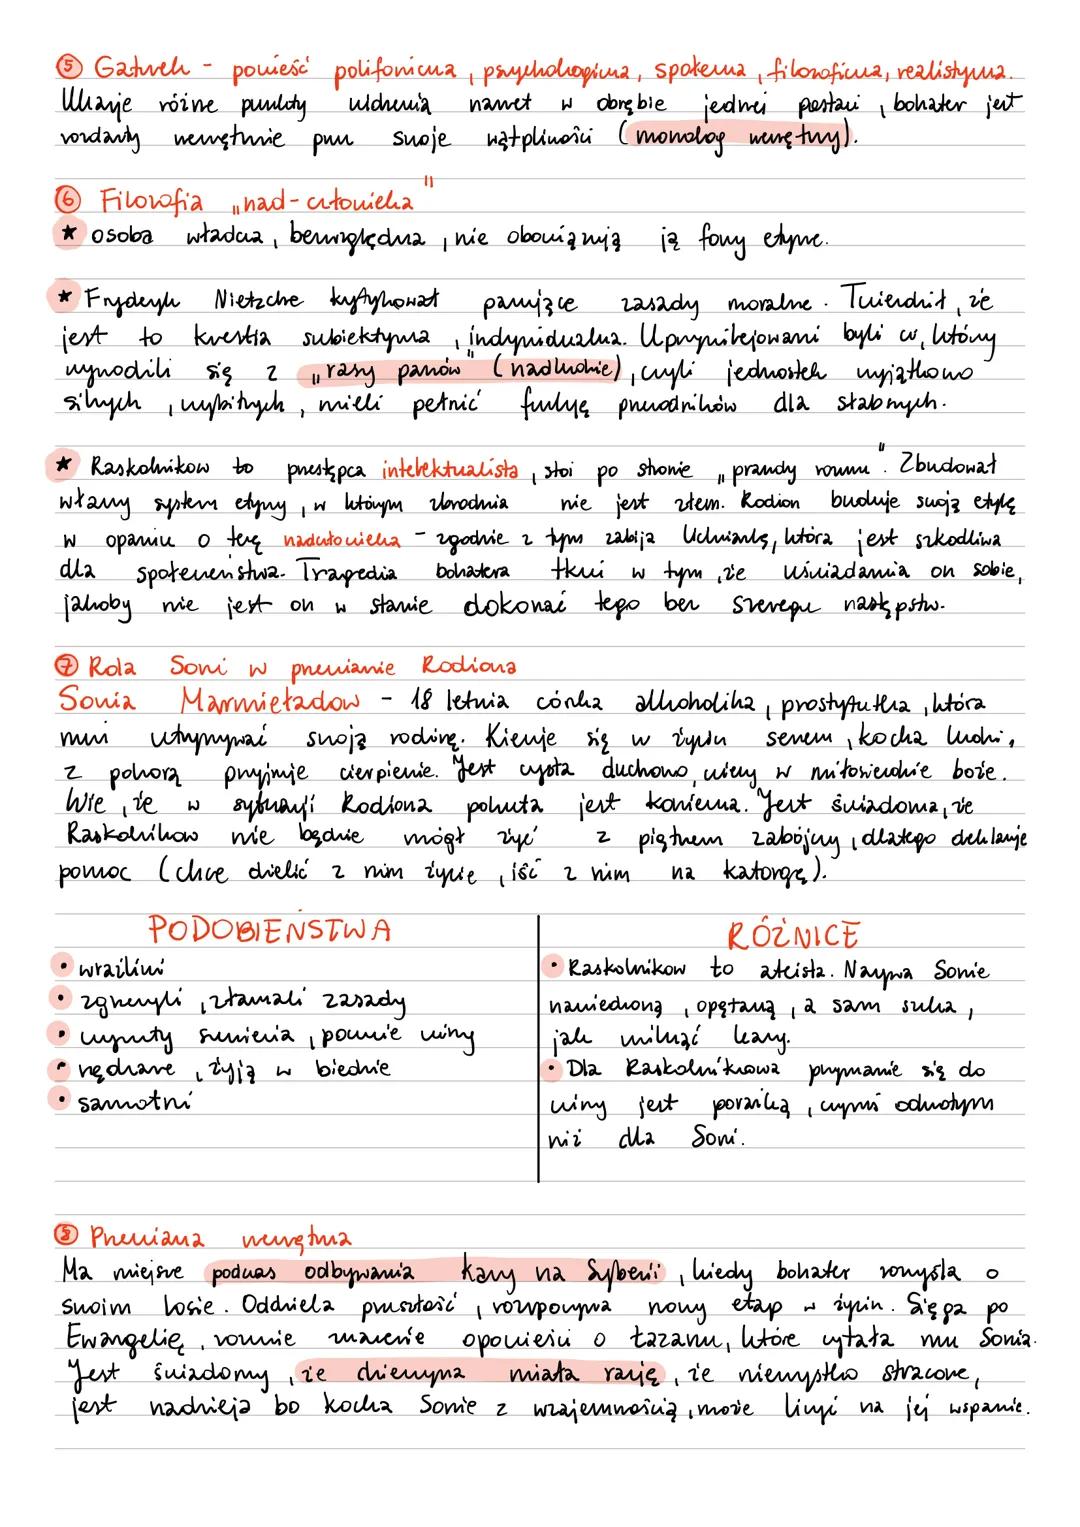 ⑤ Gatunek - powieść polifoniczna, psychologiczna, społeczna, filozoficzna, realistyczna.
Ukazuje różne punkty widzenia nawet w obrębie jednej postaci, bohater jest
rozdarty wewnętrznie przez swoje wątpliwości (monolog wewnętrzny).
⑥ Filozofia „nad-człowieka"
★ osoba władcza, bezwzględna, nie obowiązują ją formy etyczne.
★ Fryderyk Nietzche krytykował panujące zasady moralne. Twierdził, że
jest to kwestia subiektywna, indywidualna. Uprzywilejowani byli ci, którzy
wywodzili się z „rasy panów" (nadludzie), czyli jednostek wyjątkowo
silnych, wybitnych, mieli pełnić funkcję przewodników dla słabszych.
★ Raskolnikow to przestępca intelektualista, stoi po stronie „prawdy rozumu". Zbudował
własny system etyczny, w którym zbrodnia nie jest złem. Rodion buduje swoją etykę
w oparciu o tezę nadczłowieka - zgodnie z tym zabija lichwiarkę, która jest szkodliwa
dla społeczeństwa. Tragedia bohatera tkwi w tym, że uświadamia on sobie,
jakoby nie jest on w stanie dokonać tego bez szeregu następstw.
⑦ Rola Soni w przemianie Rodiona
Sonia Marmieładow - 18 letnia córka alkoholika, prostytutka, która
musi utrzymywać swoją rodzinę. Kieruje się w życiu sercem, kocha ludzi,
z pokorą przyjmuje cierpienie. Jest czysta duchowo, wierzy w miłosierdzie boże.
Wie, że w sytuacji Rodiona pokuta jest konieczna. Jest świadoma, że
Raskolnikow nie będzie mógł żyć z piętnem zabójcy, dlatego deklaruje
pomoc (chce dzielić z nim życie, iść z nim na katorgę).
PODOBIEŃSTWA
• wrażliwi
• zgrzeszyli, złamali zasady
• wyrzuty sumienia, poczucie winy
• nędzarze, żyją w biedzie
• samotni
RÓŻNICE
• Raskolnikow to ateista. Nazywa Sonie
nawiedzoną, opętaną, a sam szuka,
jak uniknąć kary.
• Dla Raskolnikowa przyznanie się do
winy jest porażką, czymś odwrotnym
niż dla Soni.
⑧ Przemiana wewnętrzna
Ma miejsce podczas odbywania kary na Syberii, kiedy bohater rozmyśla o
swoim losie. Oddziela przeszłość, rozpoczyna nowy etap w życiu. Sięga po
Ewangelię, rozumie znaczenie opowieści o Łazarzu, które czytała mu Sonia.
Jest świadomy, że dziewczyna miała rację, że nie wszystko stracone,
jest nadzieja bo kocha Sonie z wzajemnością, może liczyć na jej wsparcie.